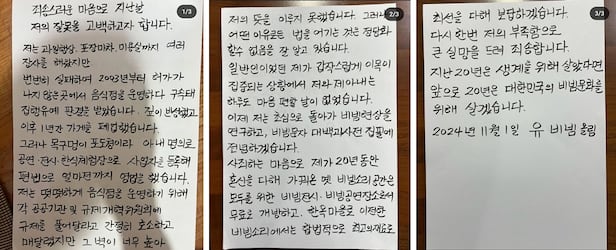 1/3
죄송스러운 마음으로 지난날
저의 잘못을 고백하고자 합니다.
저는 과일행상, 포장마차, 미용실까지 여러
장사를 해왔지만
번번히 실패하여 2003년부터 허가가
나지 않은 곳에서 음식점을 운영하다 구속돼
집행유예 판결을 받았습니다. 죄를 반성했고
이후 1년간 가게를 폐업했습니다.
그러나 목구멍이 포도청이라 아내 명의로
공연·전시·한식체험장으로 사업자등록해
편법으로 얼마전까지 영업을 했습니다.
저는 떳떳하게 음식점을 운영하기 위해
각 공공기관 및 규제개혁위원회에
규제를 풀어달라고 간절히 호소하고
매달렸지만 그 벽이 너무 높아
2/3
저의 뜻을 이루지 못했습니다. 그러나
어떤 이유로든 법을 어기는 것은 정당화
할 수 없음을 잘 알고 있습니다.
일반인이었던 제가 갑작스럽게 이목이
집중되는 상황에서 저와 제아내는
하루도 마음 편할 날이 없었습니다.
이제 저는 초심으로 돌아가 비빔현상을
연구하고, 비빔문자 대백과사전 집필에
전념하겠습니다.
사죄하는 마음으로 제가 20년동안
혼신을 다해 가꿔온 옛 비빔소리 공간은
모두를 위한 비빔전시·비빔공연장소로서
무료로 개방하고, 한옥마을로 이전한
비빔소리에서는 합법적으로 최고의 재료로
3/3
최선을 다해 보답하겠습니다.
다시 한번 저의 부족함으로
큰 실망을 드려 죄송합니다.
지난 20년은 생계를 위해 살았다면
앞으로 20년은 대한민국의 비빔문화를
위해 살겠습니다.
2024년 11월 1일 유비빔 올림